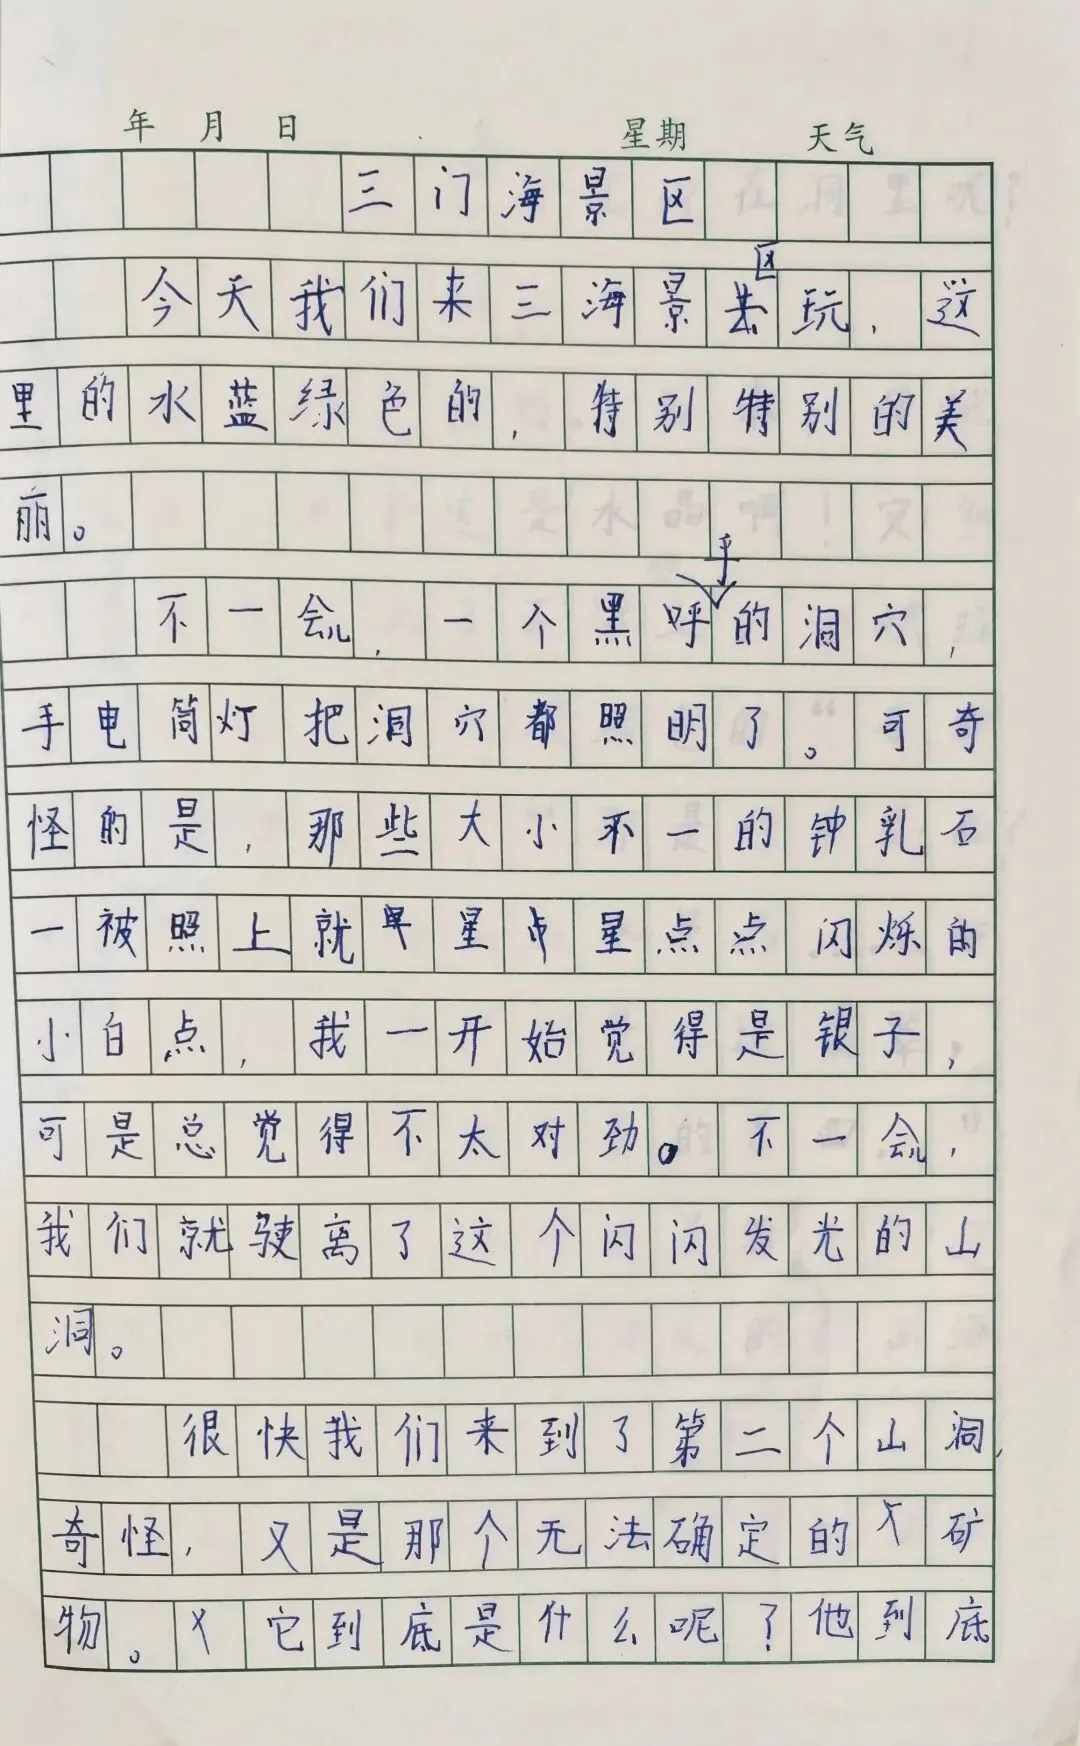 年 月 日 星期 天气
三门海景区
区
今天我们来三海景去玩,这
里的水蓝绿色的,特别特别的美
丽。
乎
不一会儿,一个黑呼的洞穴,
手电筒灯把洞穴都照明了。可奇
怪的是,那些大小不一的钟乳石
一被照上就星星点点闪烁的
小白点,我一开始觉得是银子,
可是总觉得不太对劲。不一会儿,
我们就驶离了这个闪闪发光的山
洞。
很快我们来到了第二个山洞,
奇怪,又是那个无法确定的矿
物。它到底是什么呢?他到底